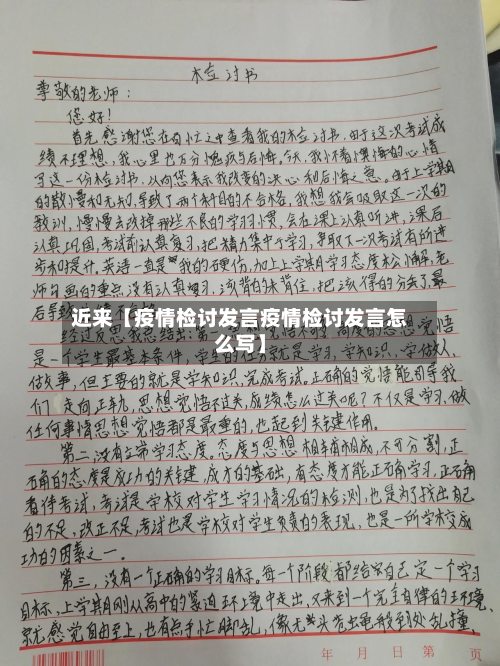 检讨书
尊敬的老师：
您好！
首先感谢您在百忙之中查看我的检讨书，由于这次考试成
绩不理想，我心里也万分愧疚与后悔。今天，我怀着懊悔的心情
写这一份检讨书，以向您表示我改变的决心和后悔之意。由于上学期
的散慢和无知，导致了两个科目的不合格，我想我会吸取这一次的
教训，慢慢去改掉那些不良的学习习惯，会在课上认真听讲，课后
认真巩固，考试前认真复习，把精力集中于学习，争取下一次考试有所进
步和提升。英语一直是我的硬伤，加上上学期学习态度松懈，老
师勾画的重点没有认真复习，该背的未背住，把该得的分丢了，最
后导致
近来【疫情检讨发言疫情检讨发言怎
么写】
经过反思我总结：第一 思想觉悟
是一个学生最基本条件，学生的 就是学习，学知识，学做人，
做事，但主要的就是学知识，完成考试。正确的觉悟能引导我
们走向正轨，思想觉悟不过关，成绩怎么过关呢？不仅是学习，做
任何事情思想觉悟都是最重的，也起到关键作用。
第二，没有立常学习态度，态度与思想相辅相成，不可分割，正
确的态度是成功的关键，成才的基础，有态度才能正确学习，正确
看待考试，考试是学校对学生学习情况的检测，也是为了找出自己
的不足，改正不足，考试也是学校对学生负责的表现，也是一所学校成
功的因素之一。
第三，没有一个正确的学习目标。每一个阶段都给自己定一个学习
目标，上学期刚从高中的紧迫环境中走出，又来到一个完全自律的环境，
感觉自由至上，也有点手忙脚乱，像无头苍蝇般到处乱撞，
年 月 日 第 页